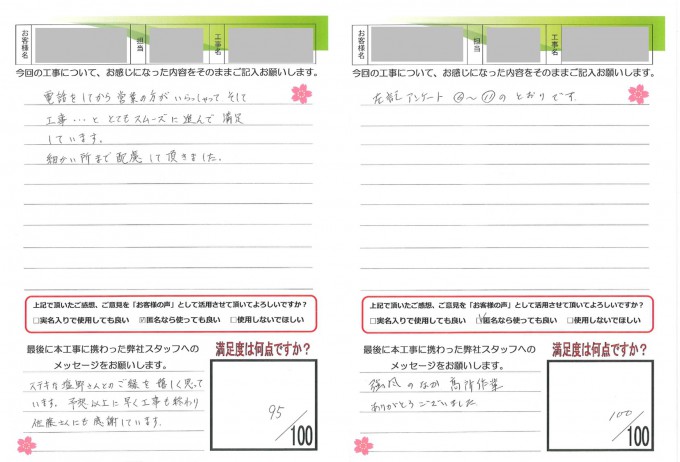 お客様名
担当
工事名
今回の工事について、お感じになった内容をそのままご記入お願いします。
電話をしてから営業の方がいらっしゃって そして
工事…と とてもスムーズに進んで 満足
しています。
細かい所まで配慮して頂きました。
上記で頂いたご感想、ご意見を「お客様の声」として活用させて頂いてよろしいですか？
□実名入りで使用しても良い ☑匿名なら使っても良い □使用しないでほしい
最後に本工事に携わった弊社スタッフへの
メッセージをお願いします。
ステキな塩野さんとのご縁を嬉しく思って
います。予想以上に早く工事も終わり
佐藤さんにも感謝しています。
満足度は何点ですか？
95
/100
お客様名
担当
工事名
今回の工事について、お感じになった内容をそのままご記入お願いします。
アンケート ⑩～⑪のとおりです
上記で頂いたご感想、ご意見を「お客様の声」として活用させて頂いてよろしいですか？
□実名入りで使用しても良い ☑匿名なら使っても良い □使用しないでほしい
最後に本工事に携わった弊社スタッフへの
メッセージをお願いします。
強風のなか 高所作業
ありがとうございました
満足度は何点ですか？
100
/100